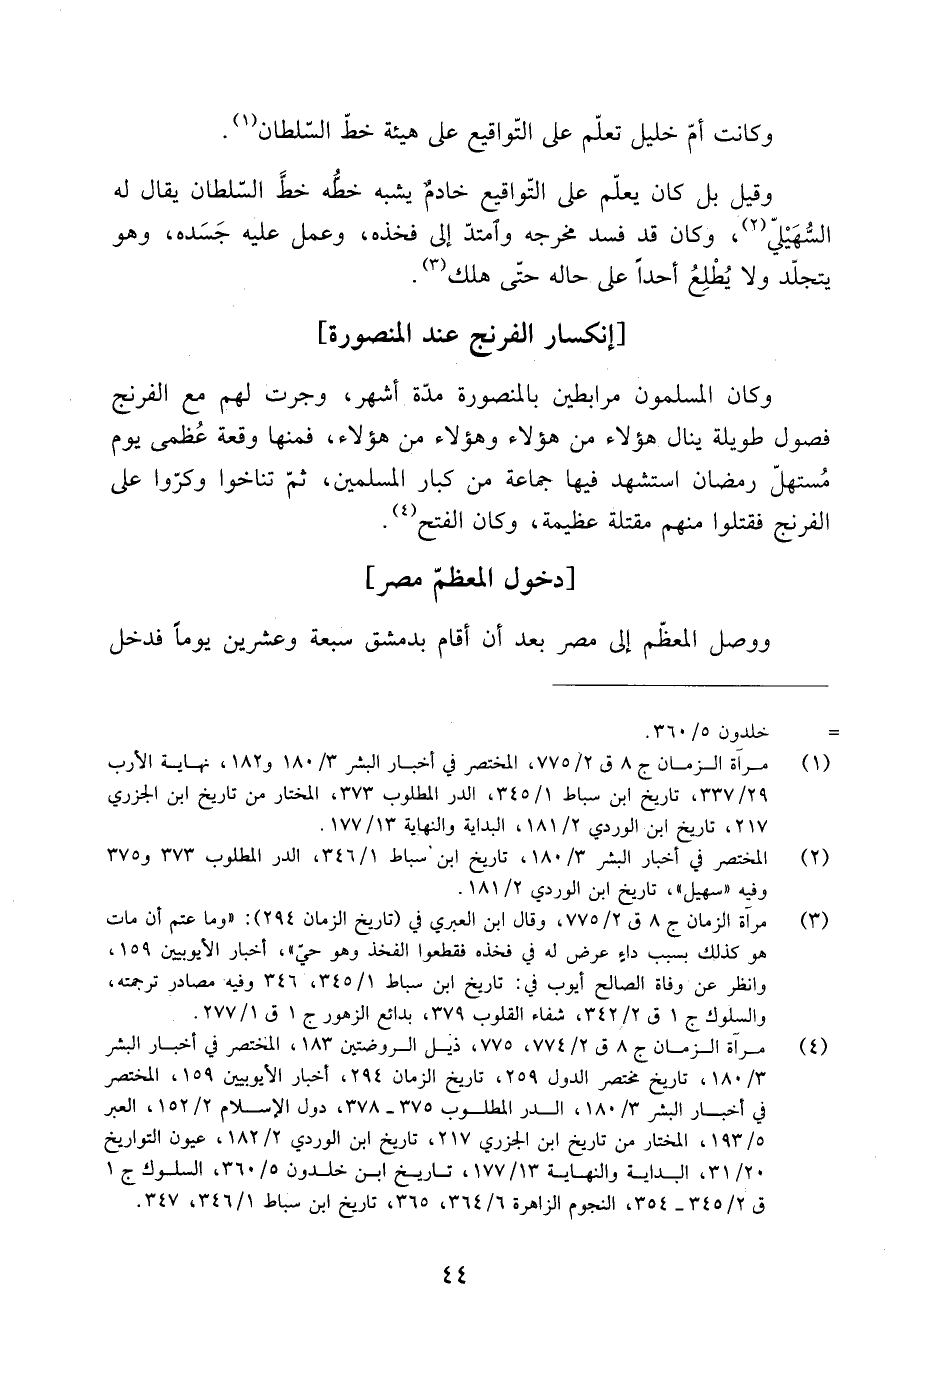 وكانت أمّ خليل تعلّم على التّواقيع على هيئة خطّ السّلطان(١).
وقيل بل كان يعلّم على التّواقيع خادمٌ يشبه خطُّه خطَّ السّلطان يقال له
السُّهَيْليّ(٢)، وكان قد فسد مخرجه وآمتدّ إلى فخذه، وعمل عليه جَسَده، وهو
يتجلّد ولا يُطْلِعُ أحداً على حاله حتّى هلك(٣).
[إنكسار الفرنج عند المنصورة]
وكان المسلمون مرابطين بالمنصورة مدّة أشهر، وجرت لهم مع الفرنج
فصول طويلة ينال هؤلاء من هؤلاء وهؤلاء من هؤلاء، فمنها وقعة عُظمى يوم
مُستهلّ رمضان استشهد فيها جماعة من كبار المسلمين، ثمّ تناخوا وكرّوا على
الفرنج فقتلوا منهم مقتلة عظيمة، وكان الفتح(٤).
[دخول المعظمّ مصر]
ووصل المعظّم إلى مصر بعد أن أقام بدمشق سبعة وعشرين يوماً فدخل
= خلدون ٥/ ٣٦٠.
(١) مرآة الزمان ج ٨ ق ٢/ ٧٧٥، المختصر في أخبار البشر ٣/ ١٨٠ و١٨٢، نهاية الأرب
٢٩/ ٣٣٧، تاريخ ابن سباط ١/ ٣٤٥، الدر المطلوب ٣٧٣، المختار من تاريخ ابن الجزري
٢١٧، تاريخ ابن الوردي ٢/ ١٨١، البداية والنهاية ١٣/ ١٧٧.
(٢) المختصر في أخبار البشر ٣/ ١٨٠، تاريخ ابن سباط ١/ ٣٤٦، الدر المطلوب ٣٧٣ و٣٧٥
وفيه «سهيل»، تاريخ ابن الوردي ٢/ ١٨١.
(٣) مرآة الزمان ج ٨ ق ٢/ ٧٧٥، وقال ابن العبري في (تاريخ الزمان ٢٩٤): «وما عتم أن مات
هو كذلك بسبب داءٍ عرض له في فخذه فقطعوا الفخذ وهو حيّ»، أخبار الأيوبيين ١٥٩،
وانظر عن وفاة الصالح أيوب في: تاريخ ابن سباط ١/ ٣٤٥، ٣٤٦ وفيه مصادر ترجمته،
والسلوك ج ١ ق ٢/ ٣٤٢، شفاء القلوب ٣٧٩، بدائع الزهور ج ١ ق ١/ ٢٧٧.
(٤) مرآة الزمان ج ٨ ق ٢/ ٧٧٤، ٧٧٥، ذيل الروضتين ١٨٣، المختصر في أخبار البشر
٣/ ١٨٠، تاريخ مختصر الدول ٢٥٩، تاريخ الزمان ٢٩٤، أخبار الأيوبيين ١٥٩، المختصر
في أخبار البشر ٣/ ١٨٠، الدر المطلوب ٣٧٥ - ٣٧٨، دول الإسلام ٢/ ١٥٢، العبر
٥/ ١٩٣، المختار من تاريخ ابن الجزري ٢١٧، تاريخ ابن الوردي ٢/ ١٨٢، عيون التواريخ
٢٠/ ٣١، البداية والنهاية ١٣/ ١٧٧، تاريخ ابن خلدون ٥/ ٣٦٠، السلوك ج ١
ق ٢/ ٣٤٥ - ٣٥٤، النجوم الزاهرة ٦/ ٣٦٤، ٣٦٥، تاريخ ابن سباط ١/ ٣٤٦، ٣٤٧.
٤٤